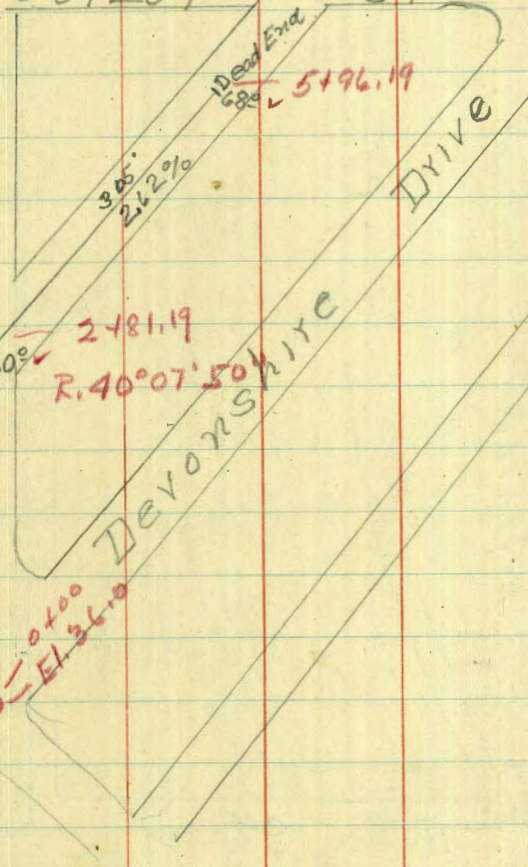 Dead End
68⁰
5+96.19
305'
2.62%
2+81.19
R. 40°07'50"
Devonshire Drive
0+00
El. 36.0